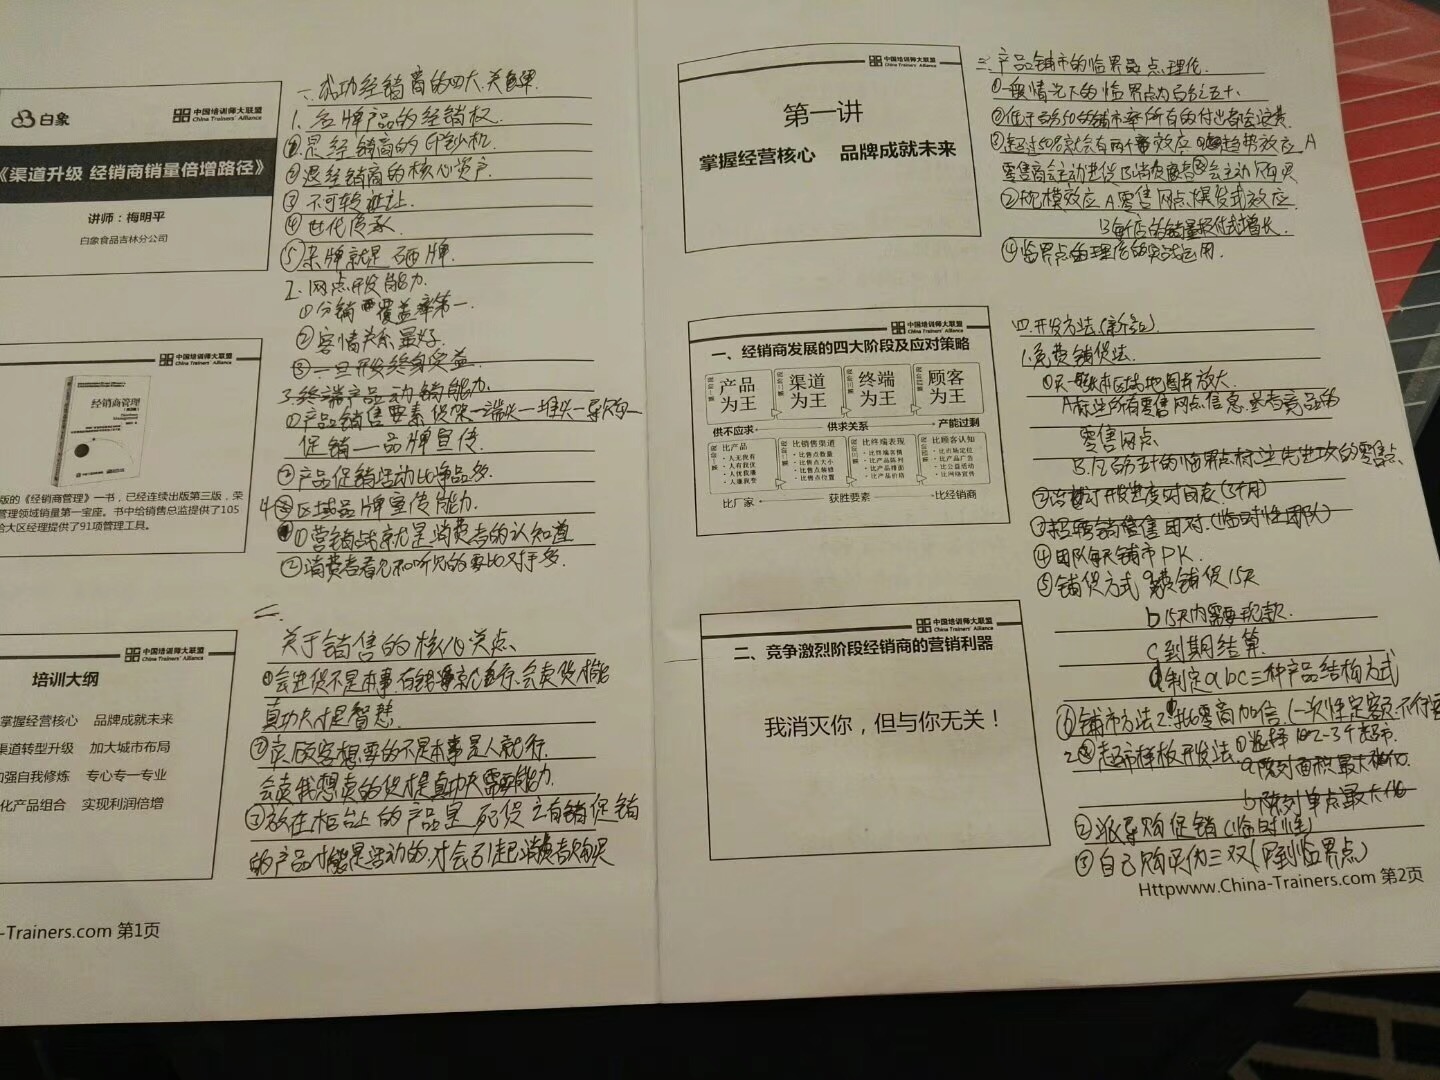 白象
中国培训师大联盟
China Trainers' Alliance
《渠道升级 经销商销量倍增路径》
讲师：梅明平
白象食品吉林分公司
中国培训师大联盟
China Trainers' Alliance
经销商管理
版的《经销商管理》一书，已经连续出版第三版，荣
管理领域销量第一宝座。书中给销售总监提供了105
给大区经理提供了91项管理工具。
中国培训师大联盟
China Trainers' Alliance
培训大纲
掌握经营核心 品牌成就未来
渠道转型升级 加大城市布局
加强自我修炼 专心专一专业
化产品组合 实现利润倍增
-Trainers.com 第1页
一、成功经销商的四大关键
1、名牌产品的经销权
①是经销商的印钞机
②是经销商的核心资产
③不可转让
④世代传承
⑤杂牌就是砸牌
2、网点开发能力
①分销覆盖率第一
②客情关系最好
③一旦开发终身受益
3、终端产品动销能力
①产品销售要素 供保一端头一堆头一导购
促销—品牌宣传
②产品促销活动比净品多
4、区域品牌宣传能力
①营销战就是消费者的认知道
②消费者看见和听见的要比对手多
二、
关于销售的核心
①会进货不是本事有钱就行,会卖货才
真功夫才是智慧
②卖顾客想要的不是本事是人就行
会卖我想卖的货才是真功夫需要能力
③放在柜台上的产品是死货 之有销促销
的产品才能是活动的,才会引起消费者购买
中国培训师大联盟
China Trainers' Alliance
第一讲
掌握经营核心 品牌成就未来
中国培训师大联盟
China Trainers' Alliance
一、经销商发展的四大阶段及应对策略
产品为王
渠道为王
终端为王
顾客为王
供不应求 供求关系 产能过剩
比产品
·人无我有
·人有我优
·人优我廉
·人廉我变
比销售渠道
·比售点数量
·比售点大小
·比售点陈销
·比售点位置
比终端表现
·比终端客情
·比产品陈列
·比产品排面
·比产品价格
比顾客认知
·比市场定位
·比产品广告
·比公益活动
·比网络宣传
比厂家 获胜要素 比经销商
中国培训师大联盟
China Trainers' Alliance
二、竞争激烈阶段经销商的营销利器
我消灭你，但与你无关！
三、产品铺市的临界点理论
①一般情况下的临界点为百分之五十
②低于50%的铺市率所有的付出都会浪费
③超过50%就会有两个效应 趋势效应 A
零售商会主动进货 B消费者会主动购买
②规模效应 A零售网点爆发式效应
B每店的销量提代式增长
④临界点的理论的实战运用
四、开发方法(新)
1.免费铺货法
①买一张本区域地图并放大
A标注所有零售网点信息,参考竞品的
零售网点
B.百分五十的临界点标注先进攻的零售点
②制订开发进度时间表(3个月)
③招聘销售团对(临时性团队)
④团队每天铺市PK
⑤铺货方式 a免费铺货15天
b 15天内需要现款
c 到期结算
d 制定abc三种产品结构方式
⑥铺市方法 2
2.超市样板开发法 ①选择 2-3个超市
a 陈列面积最大化
b 陈列单点最大化
②派导购促销(临时性)
③自己购买伪三双(只到临界点)
Httpwww.China-Trainers.com 第2页